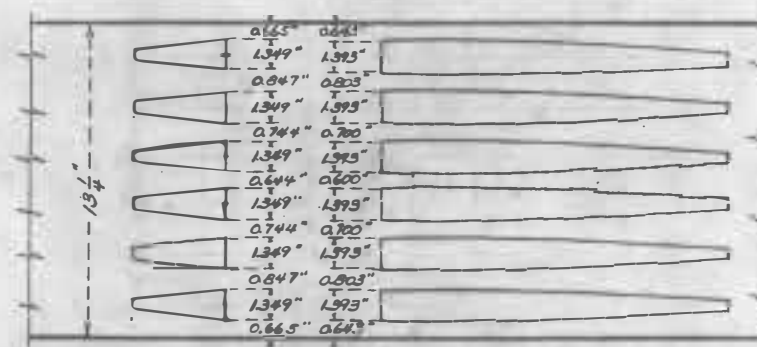 0.665" 0.643"
1.349" 1.393"
0.847" 0.803"
1.349" 1.393"
0.744" 0.700"
1.349" 1.393"
0.644" 0.600"
1.349" 1.393"
0.744" 0.700"
1.349" 1.393"
0.847" 0.803"
1.349" 1.393"
0.665"
13 1/4"